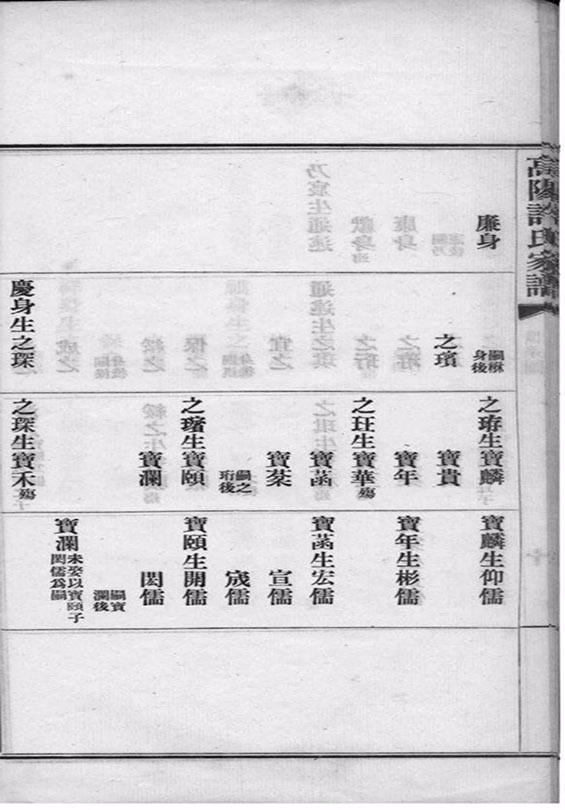 高陽許氏家譜
廉身
嗣楙
身後
之璸
慶身生之琛
生寶麟
寶貴
寶年
之玨生寶華殤
寶菡
寶棻
嗣之
珩後
生寶頤
寶瀾
之琛生寶禾殤
寶麟生仰儒
寶年生彬儒
寶菡生宏儒
宣儒
宬儒
寶頤生開儒
閎儒
嗣寶
瀾後
寶瀾
未娶以寶頤子
閎儒爲嗣